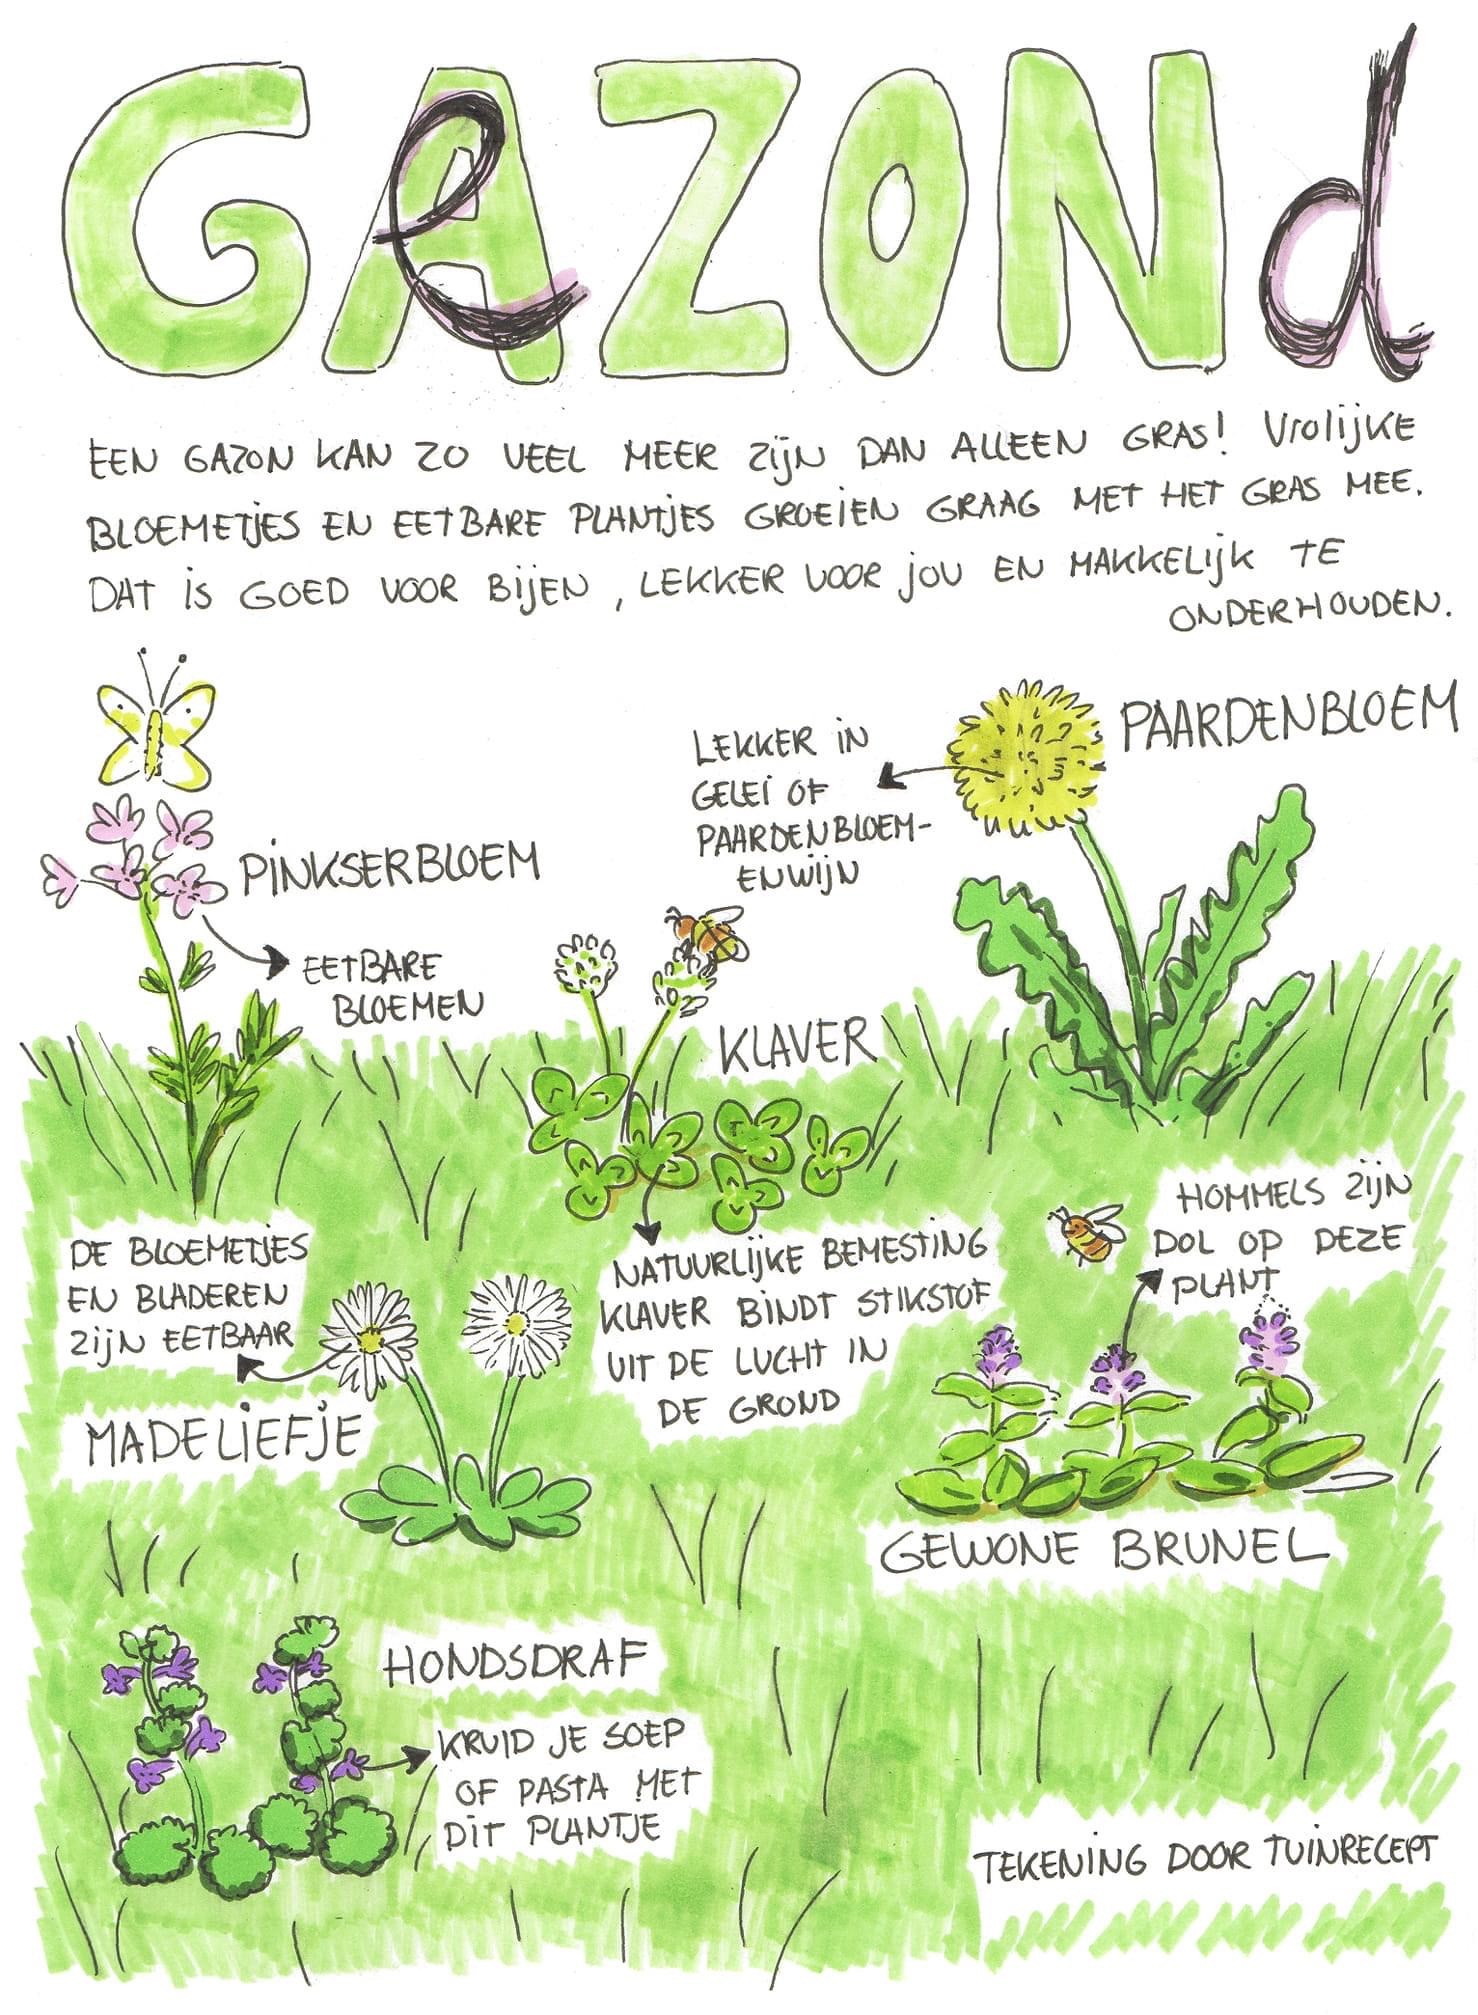 GAeZONd
EEN GAZON KAN ZO VEEL MEER ZIJN DAN ALLEEN GRAS! VROLIJKE
BLOEMETJES EN EETBARE PLANTJES GROEIEN GRAAG MET HET GRAS MEE.
DAT IS GOED VOOR BIJEN, LEKKER VOOR JOU EN MAKKELIJK TE
ONDERHOUDEN.
PAARDENBLOEM
LEKKER IN
GELEI OF
PAARDENBLOEM-
ENWIJN
PINKSERBLOEM
EETBARE
BLOEMEN
KLAVER
NATUURLIJKE BEMESTING
KLAVER BINDT STIKSTOF
UIT DE LUCHT IN
DE GROND
HOMMELS ZIJN
DOL OP DEZE
PLANT
DE BLOEMETJES
EN BLADEREN
ZIJN EETBAAR
MADELIEFJE
GEWONE BRUNEL
HONDSDRAF
KRUID JE SOEP
OF PASTA MET
DIT PLANTJE
TEKENING DOOR TUINRECEPT